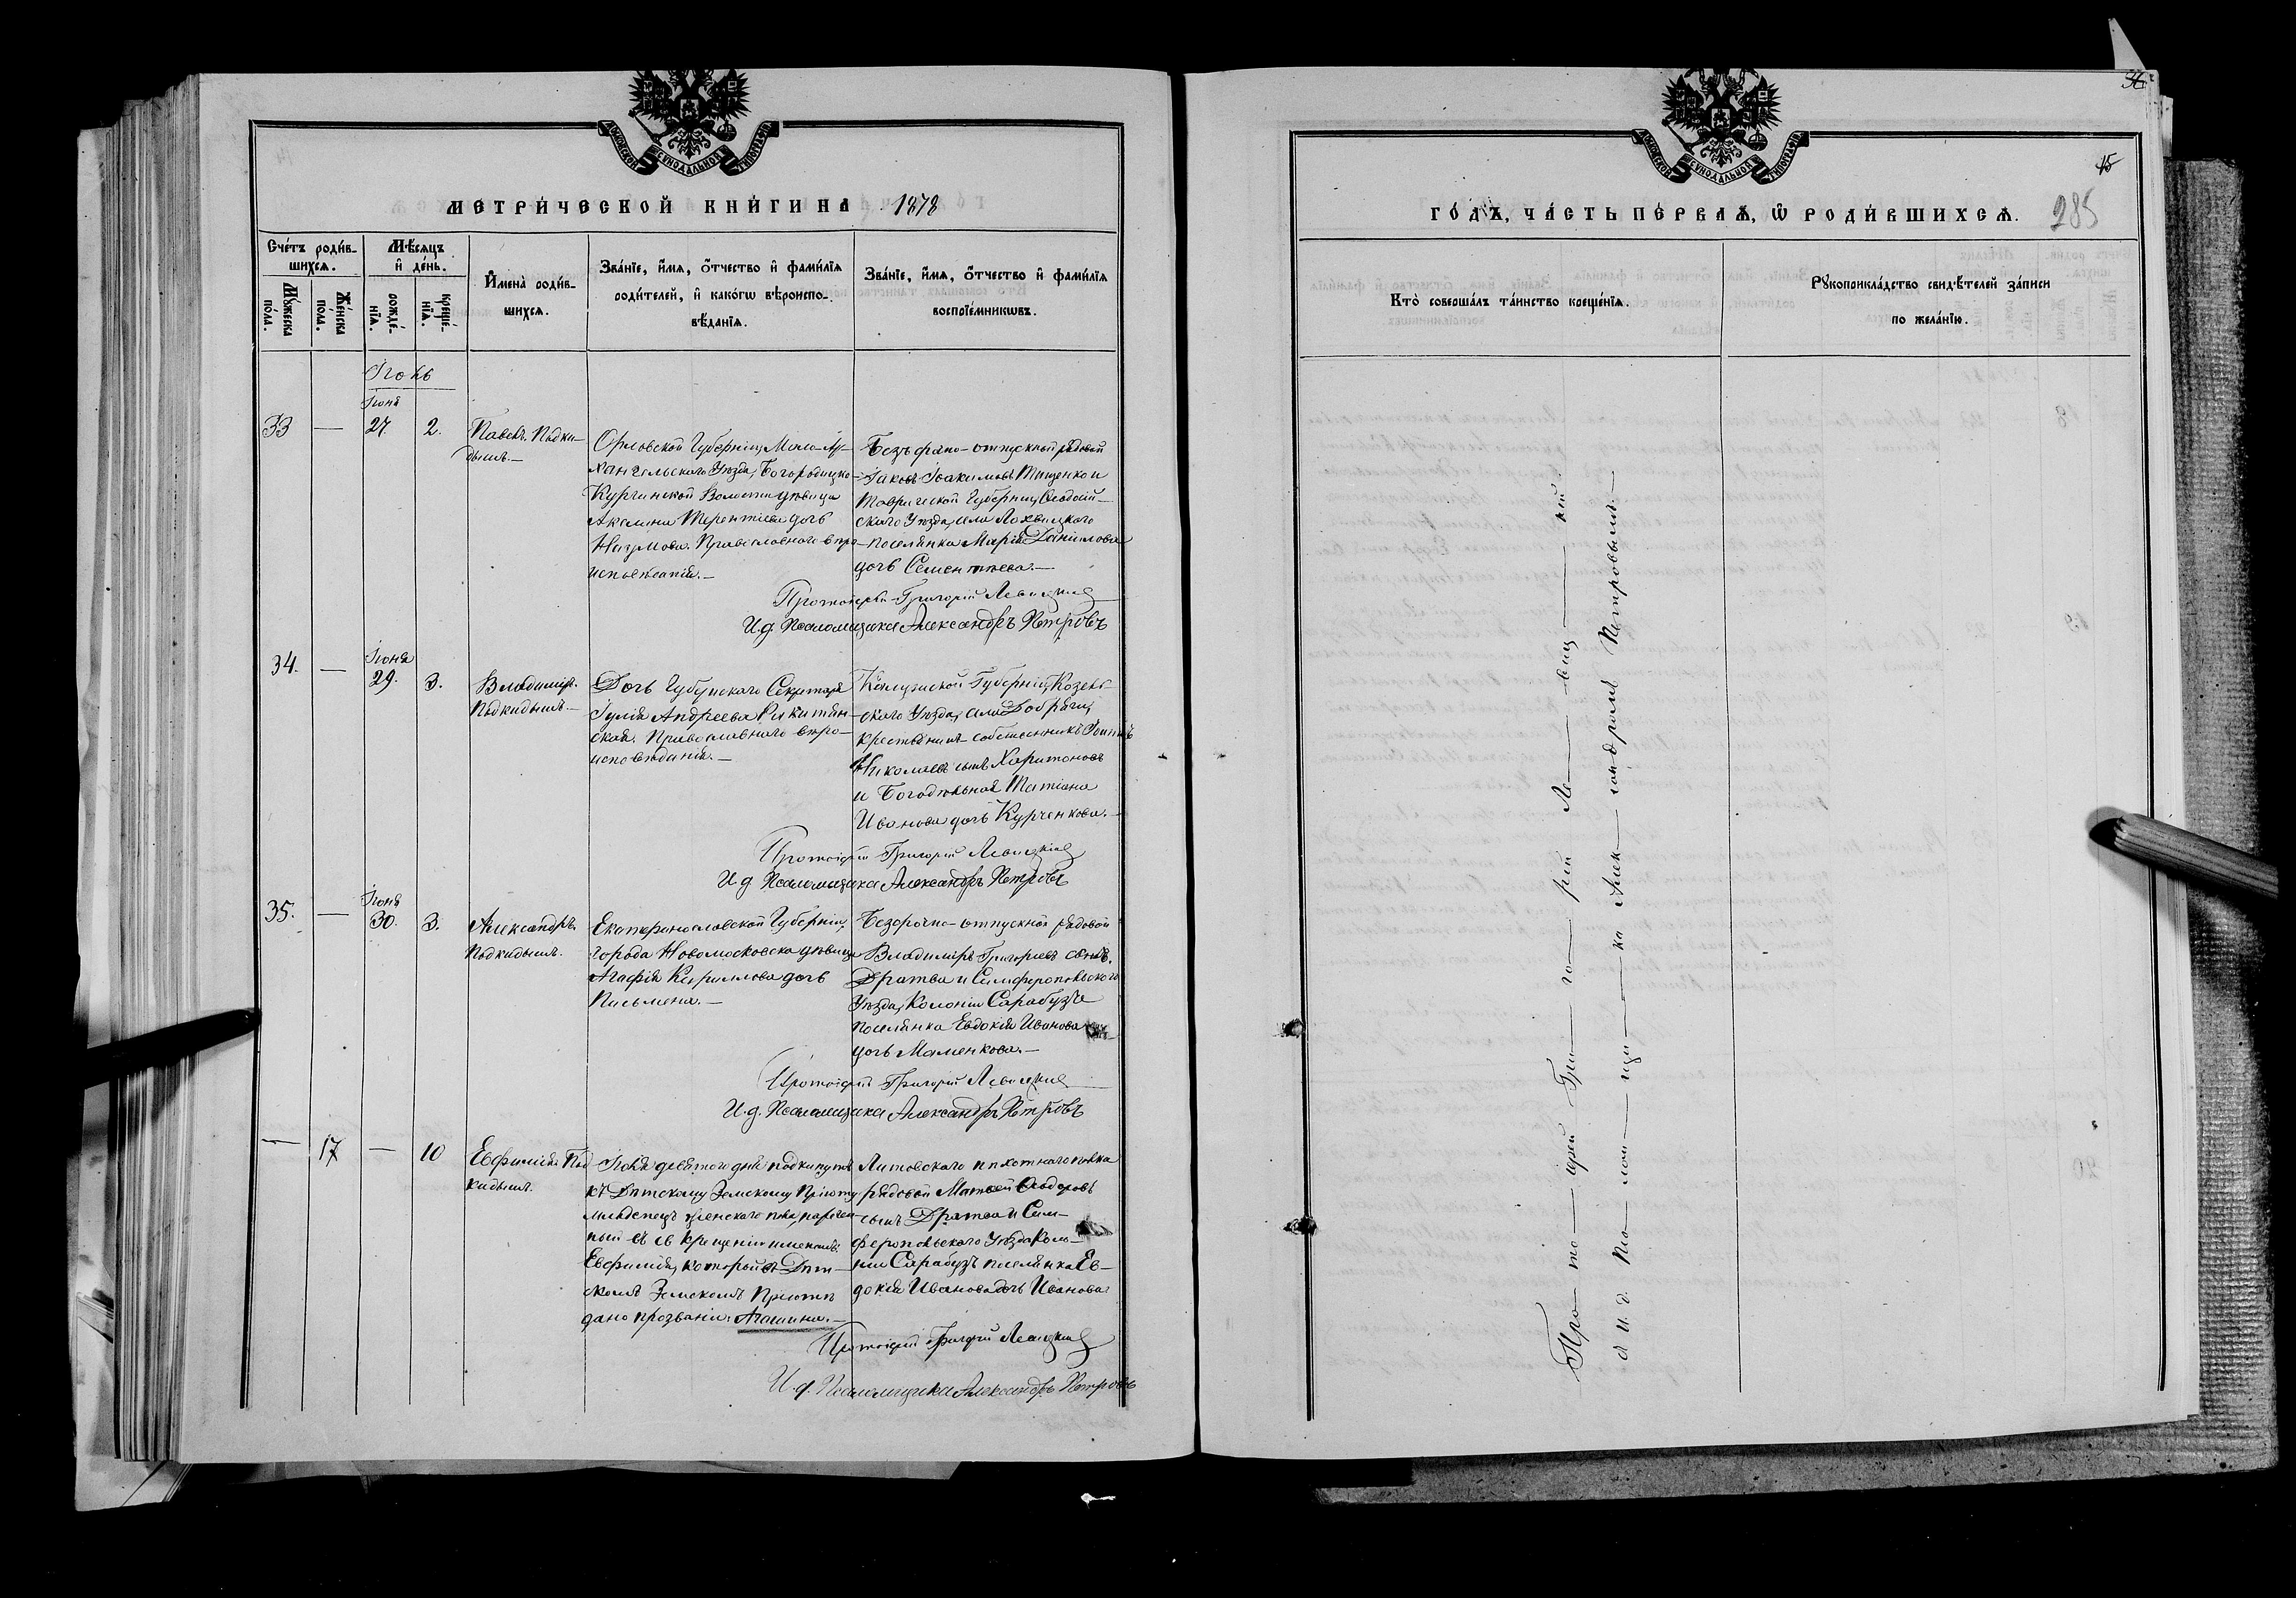 МОСКОВСКОЙ СѴНОДАЛЬНОЙ ТИПОГРАФІИ
МЕТРИ́ЧЕСКОЙ КНИ́ГИ НА 1878
Сче́тъ роди́в-
шихсѧ.
Мѣ́сѧцъ
и҆ де́нь.
Мꙋ́жеска
по́ла.
Же́нска
по́ла.
рожде́-
нїѧ.
креще́-
нїѧ.
И҆мена̀ роди́в-
шихсѧ.
Зва́нїе, и҆́мѧ, ѻ҆́тчество и҆ фами́лїѧ
роди́телей, и҆ како́гѡ вѣроиспо-
вѣ́данїѧ.
Зва́нїе, и҆́мѧ, ѻ҆́тчество и҆ фами́лїѧ
воспрїе́мникѡвъ.
Іюнь
Іюня
33 — 27. 2. Павелъ. Подки-
дышъ.—
Орловской Губерніи, Мало-Ар-
хангельского Уѣзда, Богородицко-
Курчинской Волости дѣвица
Акилина Терентіева дочь
Православного вѣро-
исповѣданія.—
отпускный рядовой
Іаковъ Іоакимовъ Тищенко и
Таврической Губерніи, Ѳеодосій-
ского Уѣзда, села
поселянка Марія Данилова
дочь Сементѣева.—
Протоіерей Григорій Левицкій
И.д. Псаломщика Александръ Петровъ
Іюня
34. — 29. 3. Владиміръ.
Подкидышъ.—
Дочь Губернскаго Секретаря
Іулія Андреева
ская. Православного вѣро-
исповѣданія.—
Калужской Губерніи, Козель-
ского Уѣзда, села
крестьянинъ-собственникъ Іоаннъ
Николаевъ сынъ Харитоновъ
и Богодѣльная Татіана
Иванова дочь Курченкова.—
Протоіерей Григорій Левицкій
И.д. Псаломщика Александръ Петровъ
Іюня
35. — 30. 3. Александръ.
Подкидышъ.
Екатеринославской Губерніи,
города Новомосковска дѣвица
Агафія Кириллова дочь
Письмена.—
Безсрочно-отпускной рядовой
Владиміръ Григорьевъ сынъ.
Дратва и Симферопольского
Уѣзда, Колоніи Сарабузъ
поселянка Евдокія Иванова
дочь Маменкова.—
Протоіерей Григорій Левицкій
И.д. Псаломщика Александръ Петровъ
— 17 — 10 Евфимія Под
кидышъ.
Іюня девятого дня подкинутъ
къ Дѣтскому Земскому Пріюту
младенецъ женскаго пола, наречен-
ный въ св. крещеніи именемъ:
Евфимія, который въ Дѣт-
скомъ Земскомъ Пріютѣ
дано прозваніе: Агашина.—
Литовскаго пѣхотнаго полка
рядовой Матвей Ѳеодоровъ
сынъ Дратва и Сим-
феропольского Уѣзда Коло-
ніи Сарабузъ поселянка Ев-
докія Иванова дочь Иванова
Протоіерей Григорій Левицкій
И.д. Псаломщика Александръ Петровъ
МОСКОВСКОЙ СѴНОДАЛЬНОЙ ТИПОГРАФІИ
36
15
285
ГО́ДЪ, ЧА́СТЬ ПЕ́РВАѦ, Ѡ҆ РОДИ́ВШИХСѦ.
Кто̀ соверша́лъ та́инство креще́нїѧ.
Рꙋкоприкла́дство свидѣ́телей за́писи
по жела́нїю.
Про—то—іерей Гри—го—рій Ле—виц—кій
и И.д. Пса—лом—щи—ка Алек—сандромъ Петровымъ.—